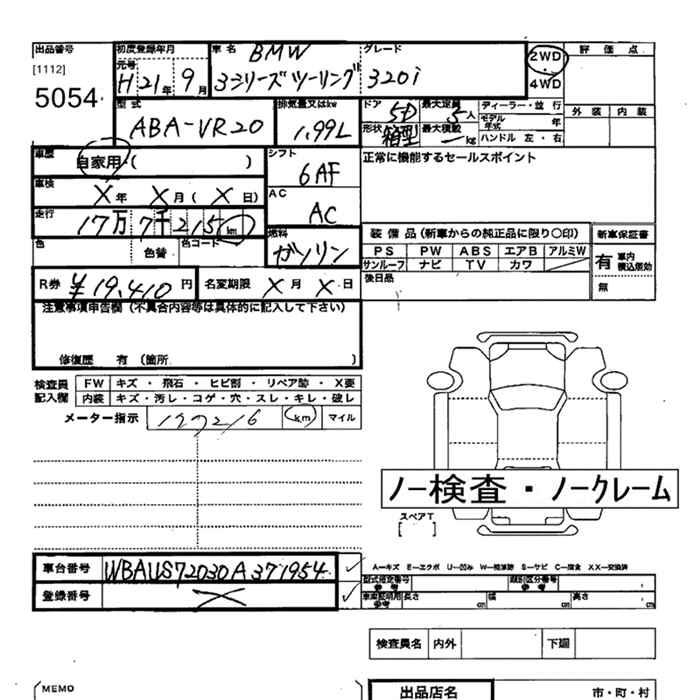 出品番号 初度登録年月 車名 BMW グレード 2WD 評価点
[1112] 元号 ・
5054 H 21年 9月 3シリーズツーリング 320i 4WD 外装 内装
型式 排気量又はkw ドア 5D 最大定員 5人 ディーラー・並行
ABA-VR20 1.99L 形状 箱型 最大積載 ー kg モデル年式 年
ハンドル 左・右
車歴 自家用 ( ) シフト 6AF 正常に機能するセールスポイント
車検 X年 X月 (X日) AC
走行 17万7千215km AC
色 色替 色コード 燃料 ガソリン 装備品(新車からの純正品に限り〇印) 新車保証書
PS PW ABS エアB アルミW 有 車内 積込有効
サンルーフ ナビ TV カワ
R券 ¥19,410円 名変期限 X月 X日 後日品 無
注意事項申告欄(不具合内容等は具体的に記入して下さい)
修復歴 有 (箇所 )
検査員 FW キズ・飛石・ヒビ割・リペア跡・X要
記入欄 内装 キズ・汚レ・コゲ・穴・スレ・キレ・破レ
メーター指示 177216 km マイル
ノー検査・ノークレーム
スペアT
[ ]
車台番号 WBAUS72030A371954 ✓ A-キズ E-エクボ U-凹み W-補修跡 S-サビ C-腐食 XX-交換済
型式指定番号 参考 類別区分番号 参考
登録番号 X ✓ 車庫証明用 参考 長さ cm 幅 cm 高さ cm
検査員名 内外 下廻
MEMO 出品店名 市・町・村